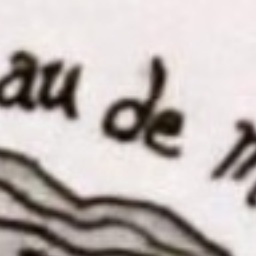 au de